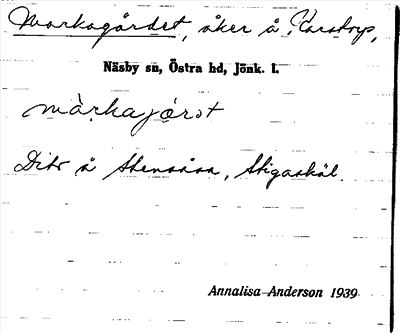 Markagärdet, åker å Karstorp,
Näsby sn, Östra hd, Jönk. l.
Dito å Stensåsa, Stigaskäl.
Annalisa Anderson 1939